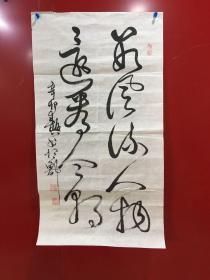 数风流人物
还看今朝
辛卯